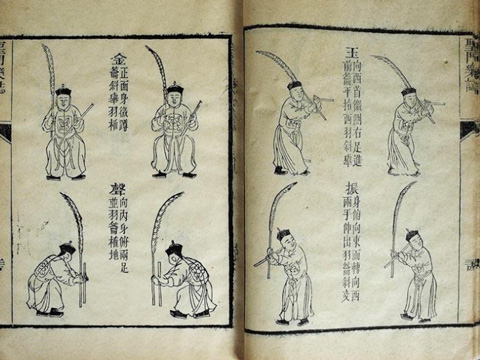 聖門樂誌
玉
向西首微側右足進
前籥平指西羽斜舉
振
身俯向東面轉向西
兩手伸出羽籥斜支
金
正面身微蹲
籥斜舉羽植
聲
向內身俯兩足
並羽籥植地
聖門樂誌